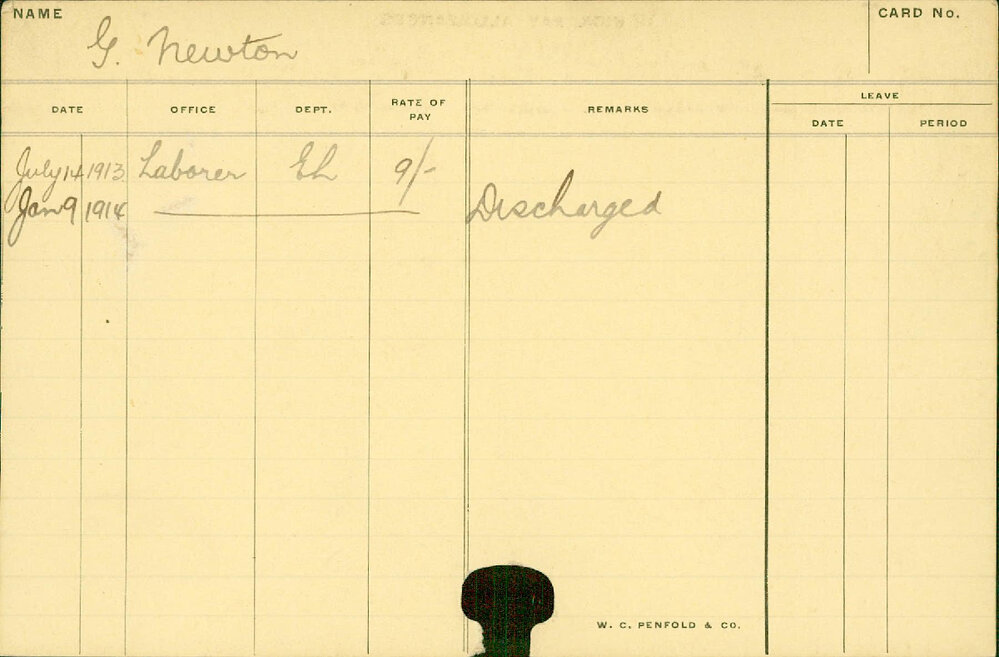 NAME
CARD No.
G. Newton
DATE
OFFICE
DEPT.
RATE OF PAY
REMARKS
LEAVE
DATE
PERIOD
July 14 1913 Laborer Eh 9/-
Jan 9 1914 Discharged
W. C. PENFOLD & CO.